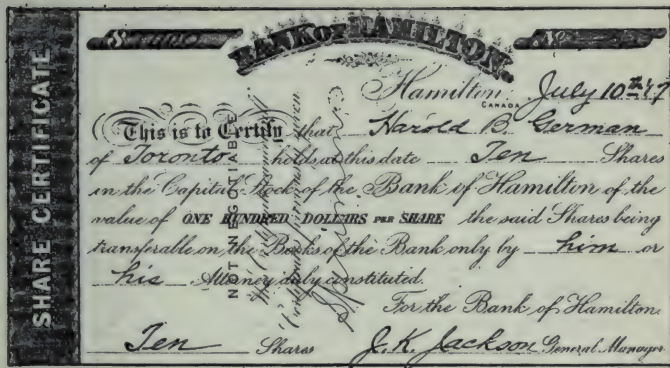 SHARE CERTIFICATE
BANK OF HAMILTON.
Hamilton, July 10th '17
CANADA
This is to Certify that Harold B. German
of Toronto holds at this date Ten Shares
in the Capital Stock of the Bank of Hamilton of the
value of ONE HUNDRED DOLLARS PER SHARE the said Shares being
transferable on the Books of the Bank only by him or
his Attorney duly constituted.
For the Bank of Hamilton.
Ten Shares J. K. Jackson General Manager
NOT NEGOTIABLE